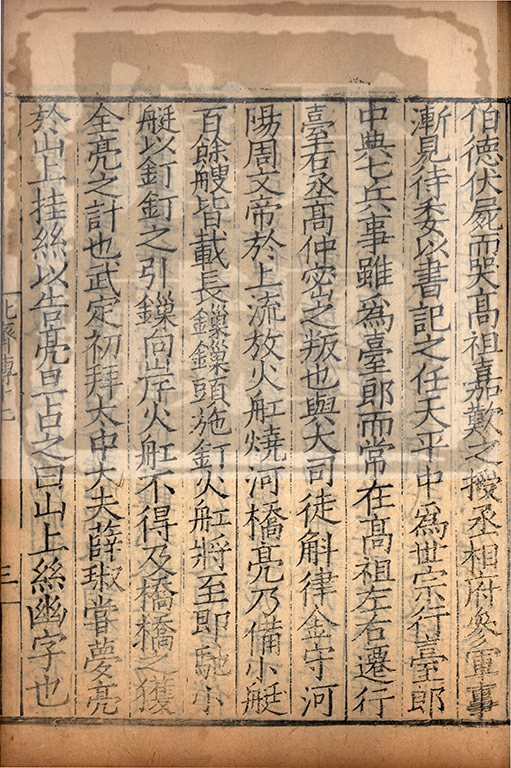 伯德伏屍而哭髙祖嘉歎之授丞相府參軍事
漸見待委以書記之任天平中為世宗行臺郎
中典七兵事雖為臺郎而常在髙祖左右遷行
臺右丞髙仲宻之叛也與大司徒斛律金守河
陽周文帝於上流放火舡燒河橋亮乃備小艇
百餘艘皆載長鏁鏁頭施釘火舡將至即馳小
艇以釘釘之引鏁向岸火舡不得及橋橋之獲
全亮之計也武定初拜太中大夫薛琡嘗夢亮
於山上挂絲以告亮旦占之曰山上絲幽字也
北齊傳十七
三